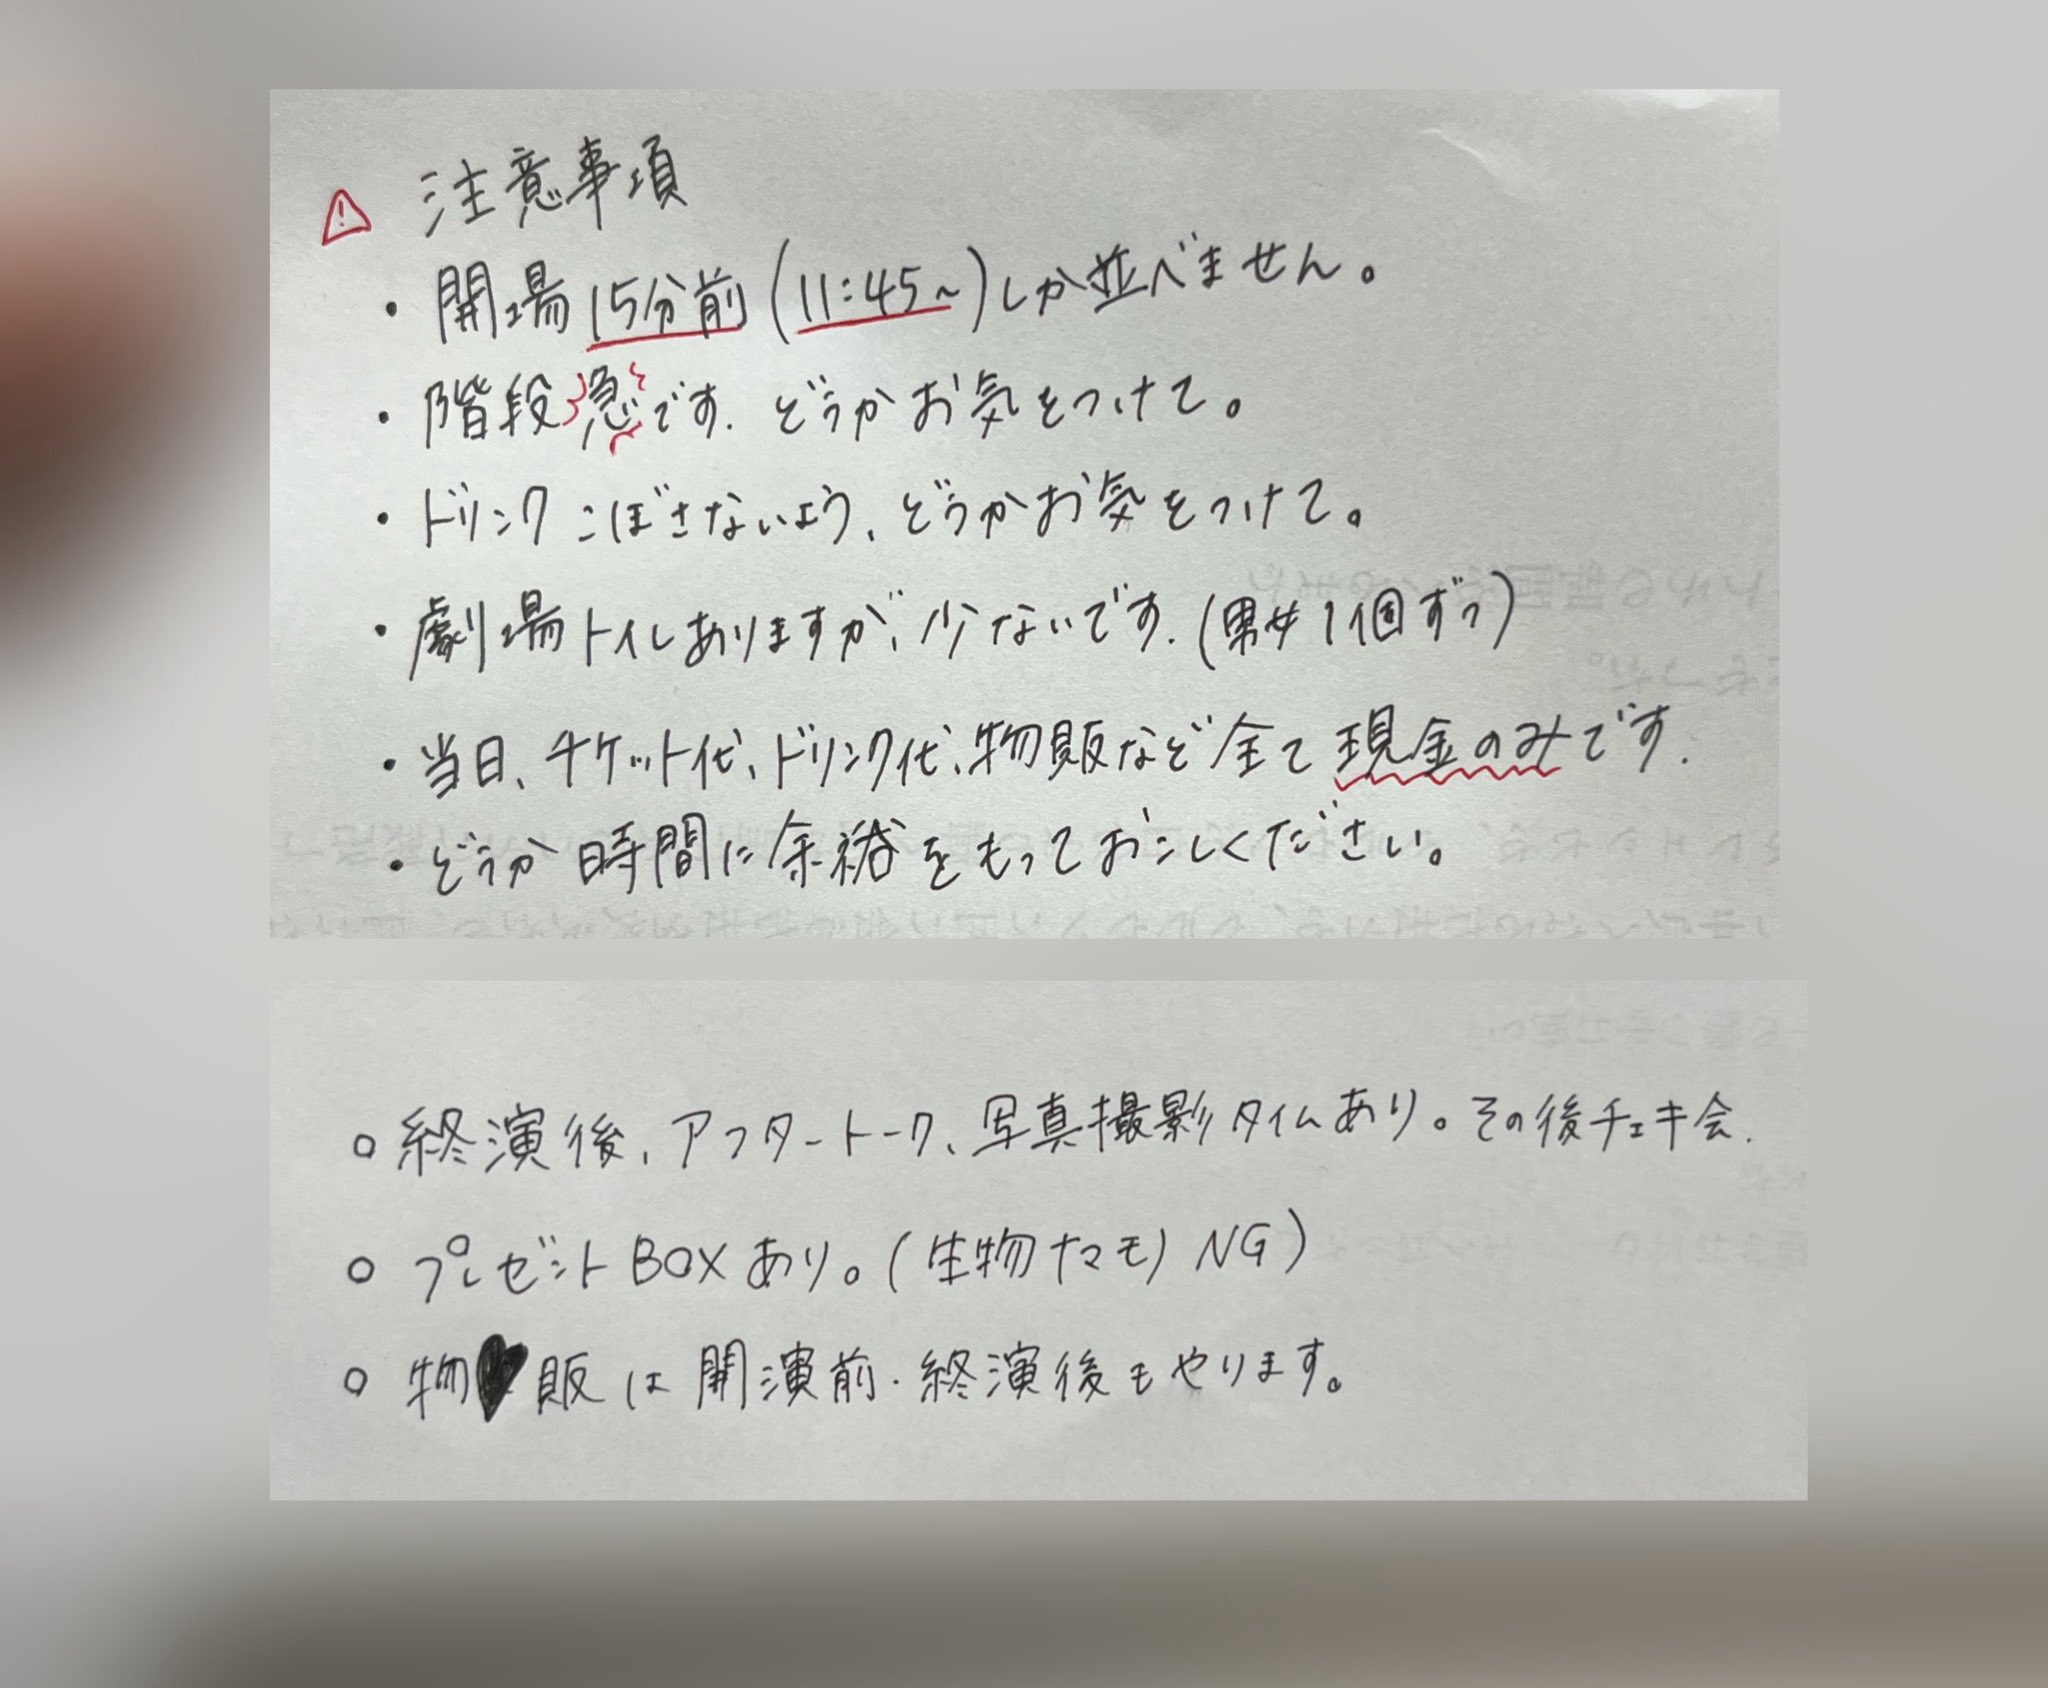 ⚠ 注意事項
・開場15分前(11:45~)しか並べません。
・階段急です. どうかお気をつけて。
・ドリンクこぼさないよう、どうかお気をつけて。
・劇場トイレありますが、少ないです.(男女1個ずつ)
・当日、チケット代、ドリンク代、物販など全て現金のみです.
・どうか時間に余裕をもっておこしください。
○終演後、アフタートーク、写真撮影タイムあり。その後チェキ会.
○プレゼントBOXあり。(生物ナマモノNG)
○物♥販は開演前・終演後もやります。